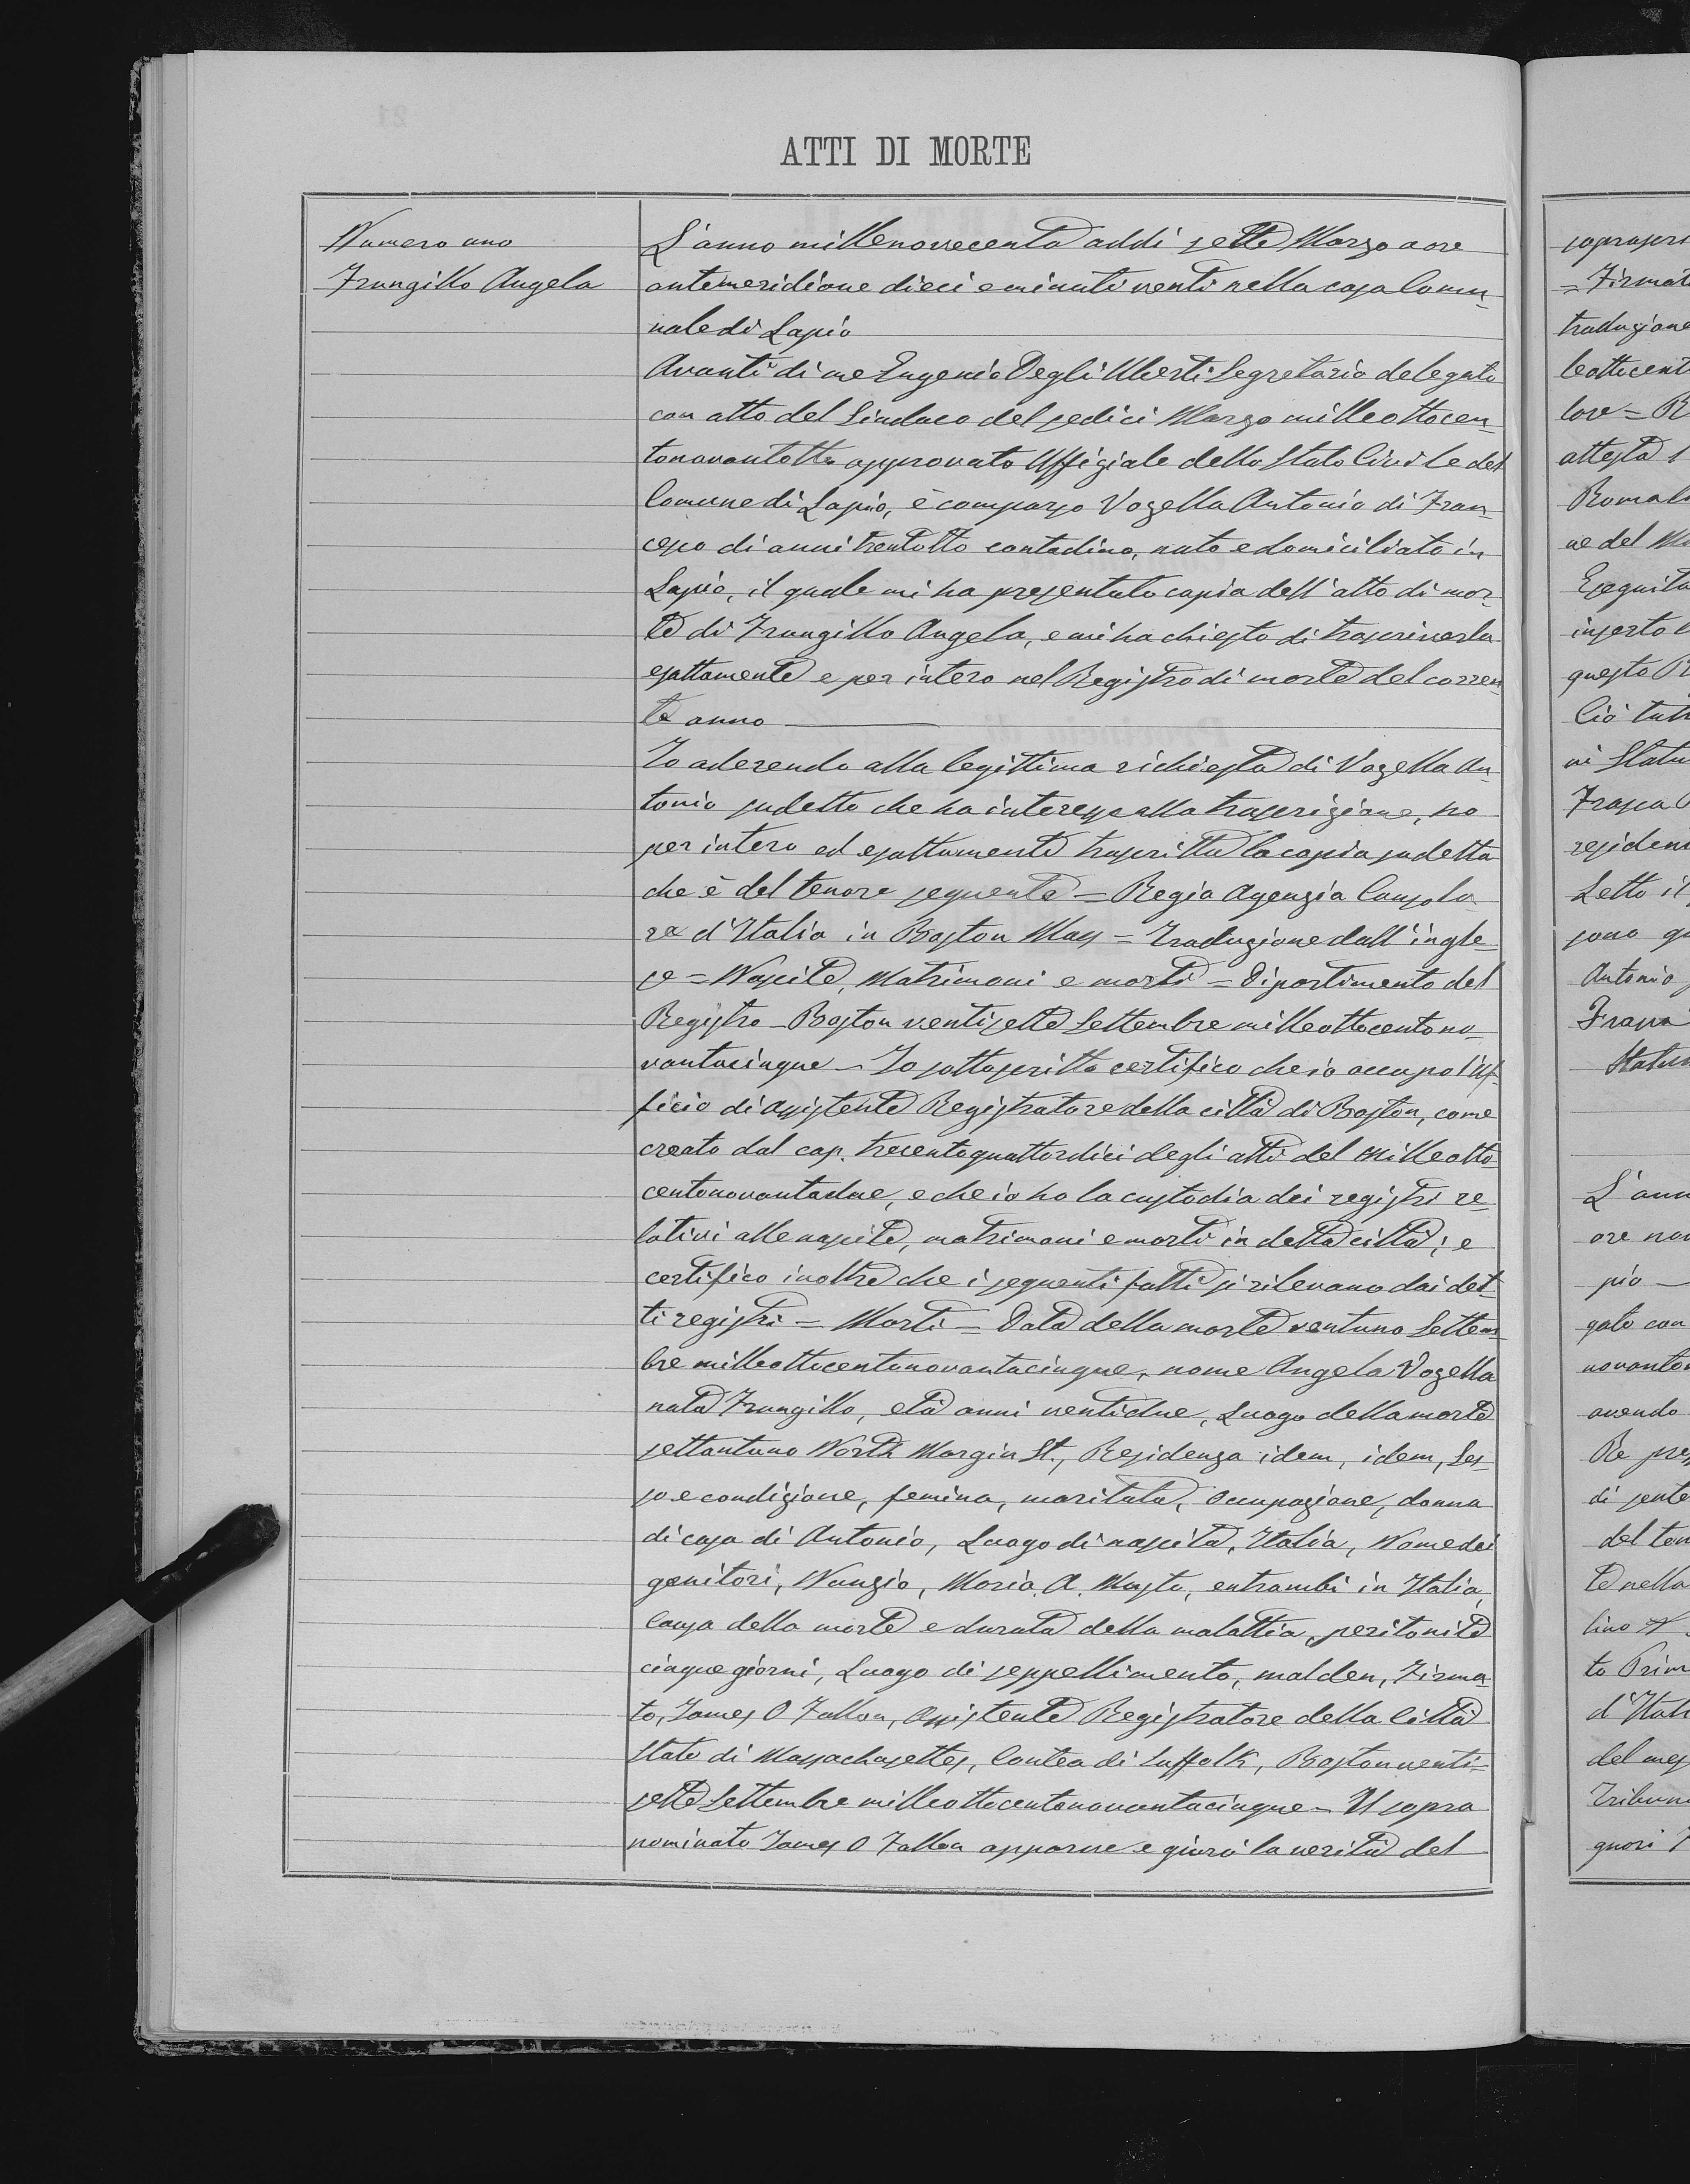 ATTI DI MORTE
Numero uno
Frungillo Angela
L'anno millenovecento addì sette Marzo a ore
antimeridiane dieci e minuti venti nella casa Comu-
nale di Lapio
Avanti di me Eugenio Degli Uberti Segretario delegato
con atto del Sindaco del sedici Marzo milleottocen-
tonovantotto approvato Uffiziale dello Stato Civile del
Comune di Lapio, è comparso Vozella Antonio di Fran-
cesco di anni trentotto contadino, nato e domiciliato in
Lapio, il quale mi ha presentato copia dell'atto di mor-
te di Frungillo Angela, e mi ha chiesto di trascriverla
esattamente e per intero nel Registro di morte del corren-
te anno
Io aderendo alla legittima richiesta di Vozella An-
tonio sudetto che ha interesse alla trascrizione, ho
per intero ed esattamente trascritta la copia sudetta
che è del tenore seguente = Regia Agenzia Consola-
re d'Italia in Boston Mass = Traduzione dall'ingle-
se = Nascite, Matrimoni e morti = Dipartimento del
Registro - Boston ventisette Settembre milleottocentono-
vantacinque - Io sottoscritto certifico che io occupo l'Uf-
ficio di assistente Registratore della città di Boston, come
creato dal cap. trecentoquattordici degli atti del milleotto
centonovantadue, e che io ho la custodia dei registri re-
lativi alle nascite, matrimoni e morti in detta città; e
certifico inoltre che i seguenti fatti si rilevano dai det-
ti registri = Morti = Data della morte ventuno Settem-
bre milleottocentonovantacinque, nome Angela Vozella
nata Frungillo, età anni ventidue, Luogo della morte
settantuno North Margin St., Residenza idem, idem, Ses-
so e condizione, femina, maritata, Occupazione, donna
di casa di Antonio, Luogo di nascita, Italia, Nome dei
genitori, Nunzio, Maria A. Musto, entrambi in Italia,
Causa della morte e durata della malattia, peritonite
cinque giorni, Luogo di seppellimento, malden, Firma-
to, James O Fallon, Assistente Registratore della Città
Stato di Massachusettes, Contea di Suffolk, Boston venti-
sette Settembre milleottocentonovantacinque - Il sopra
nominato James O Fallon apparve e giurò la verità del
soprascri
= Firmat
traduzione
leottocent
lore = R
attesta
Romal
ne del
Eseguita
inserto
questo R
Ciò tut
ni Statu
Frasca
residen
Letto il
sono
Antonio
L'ann
ore nov
pio -
gato con
novanto
avendo
Re
di
del ten
te nella
lino
to Prim
d'Itali
del mes
Tribun
gnori